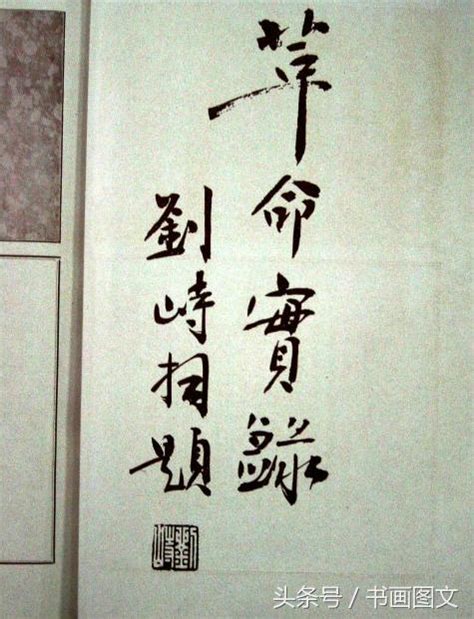 革命實錄
劉峙題
劉峙
头条号 / 书画图文